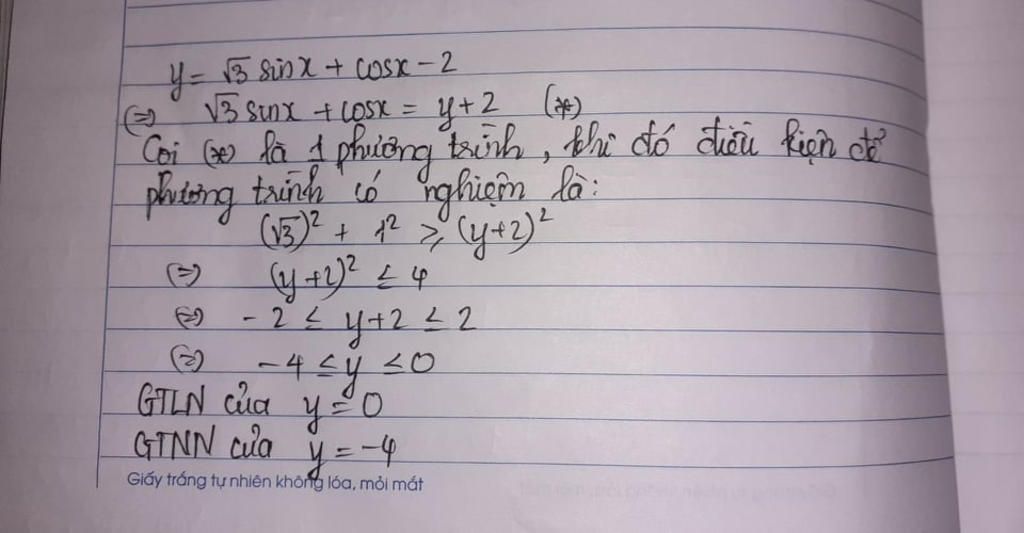 y = √3 sinx + cosx - 2
(=) √3 sinx + cosx = y + 2 (*)
Coi (*) là 1 phương trình, khi đó điều kiện để
phương trình có nghiệm là:
(√3)² + 1² ≥ (y+2)²
(=) (y+2)² ≤ 4
(=) -2 ≤ y+2 ≤ 2
(=) -4 ≤ y ≤ 0
GTLN của y = 0
GTNN của y = -4
Giấy trắng tự nhiên không lóa, mỏi mắt